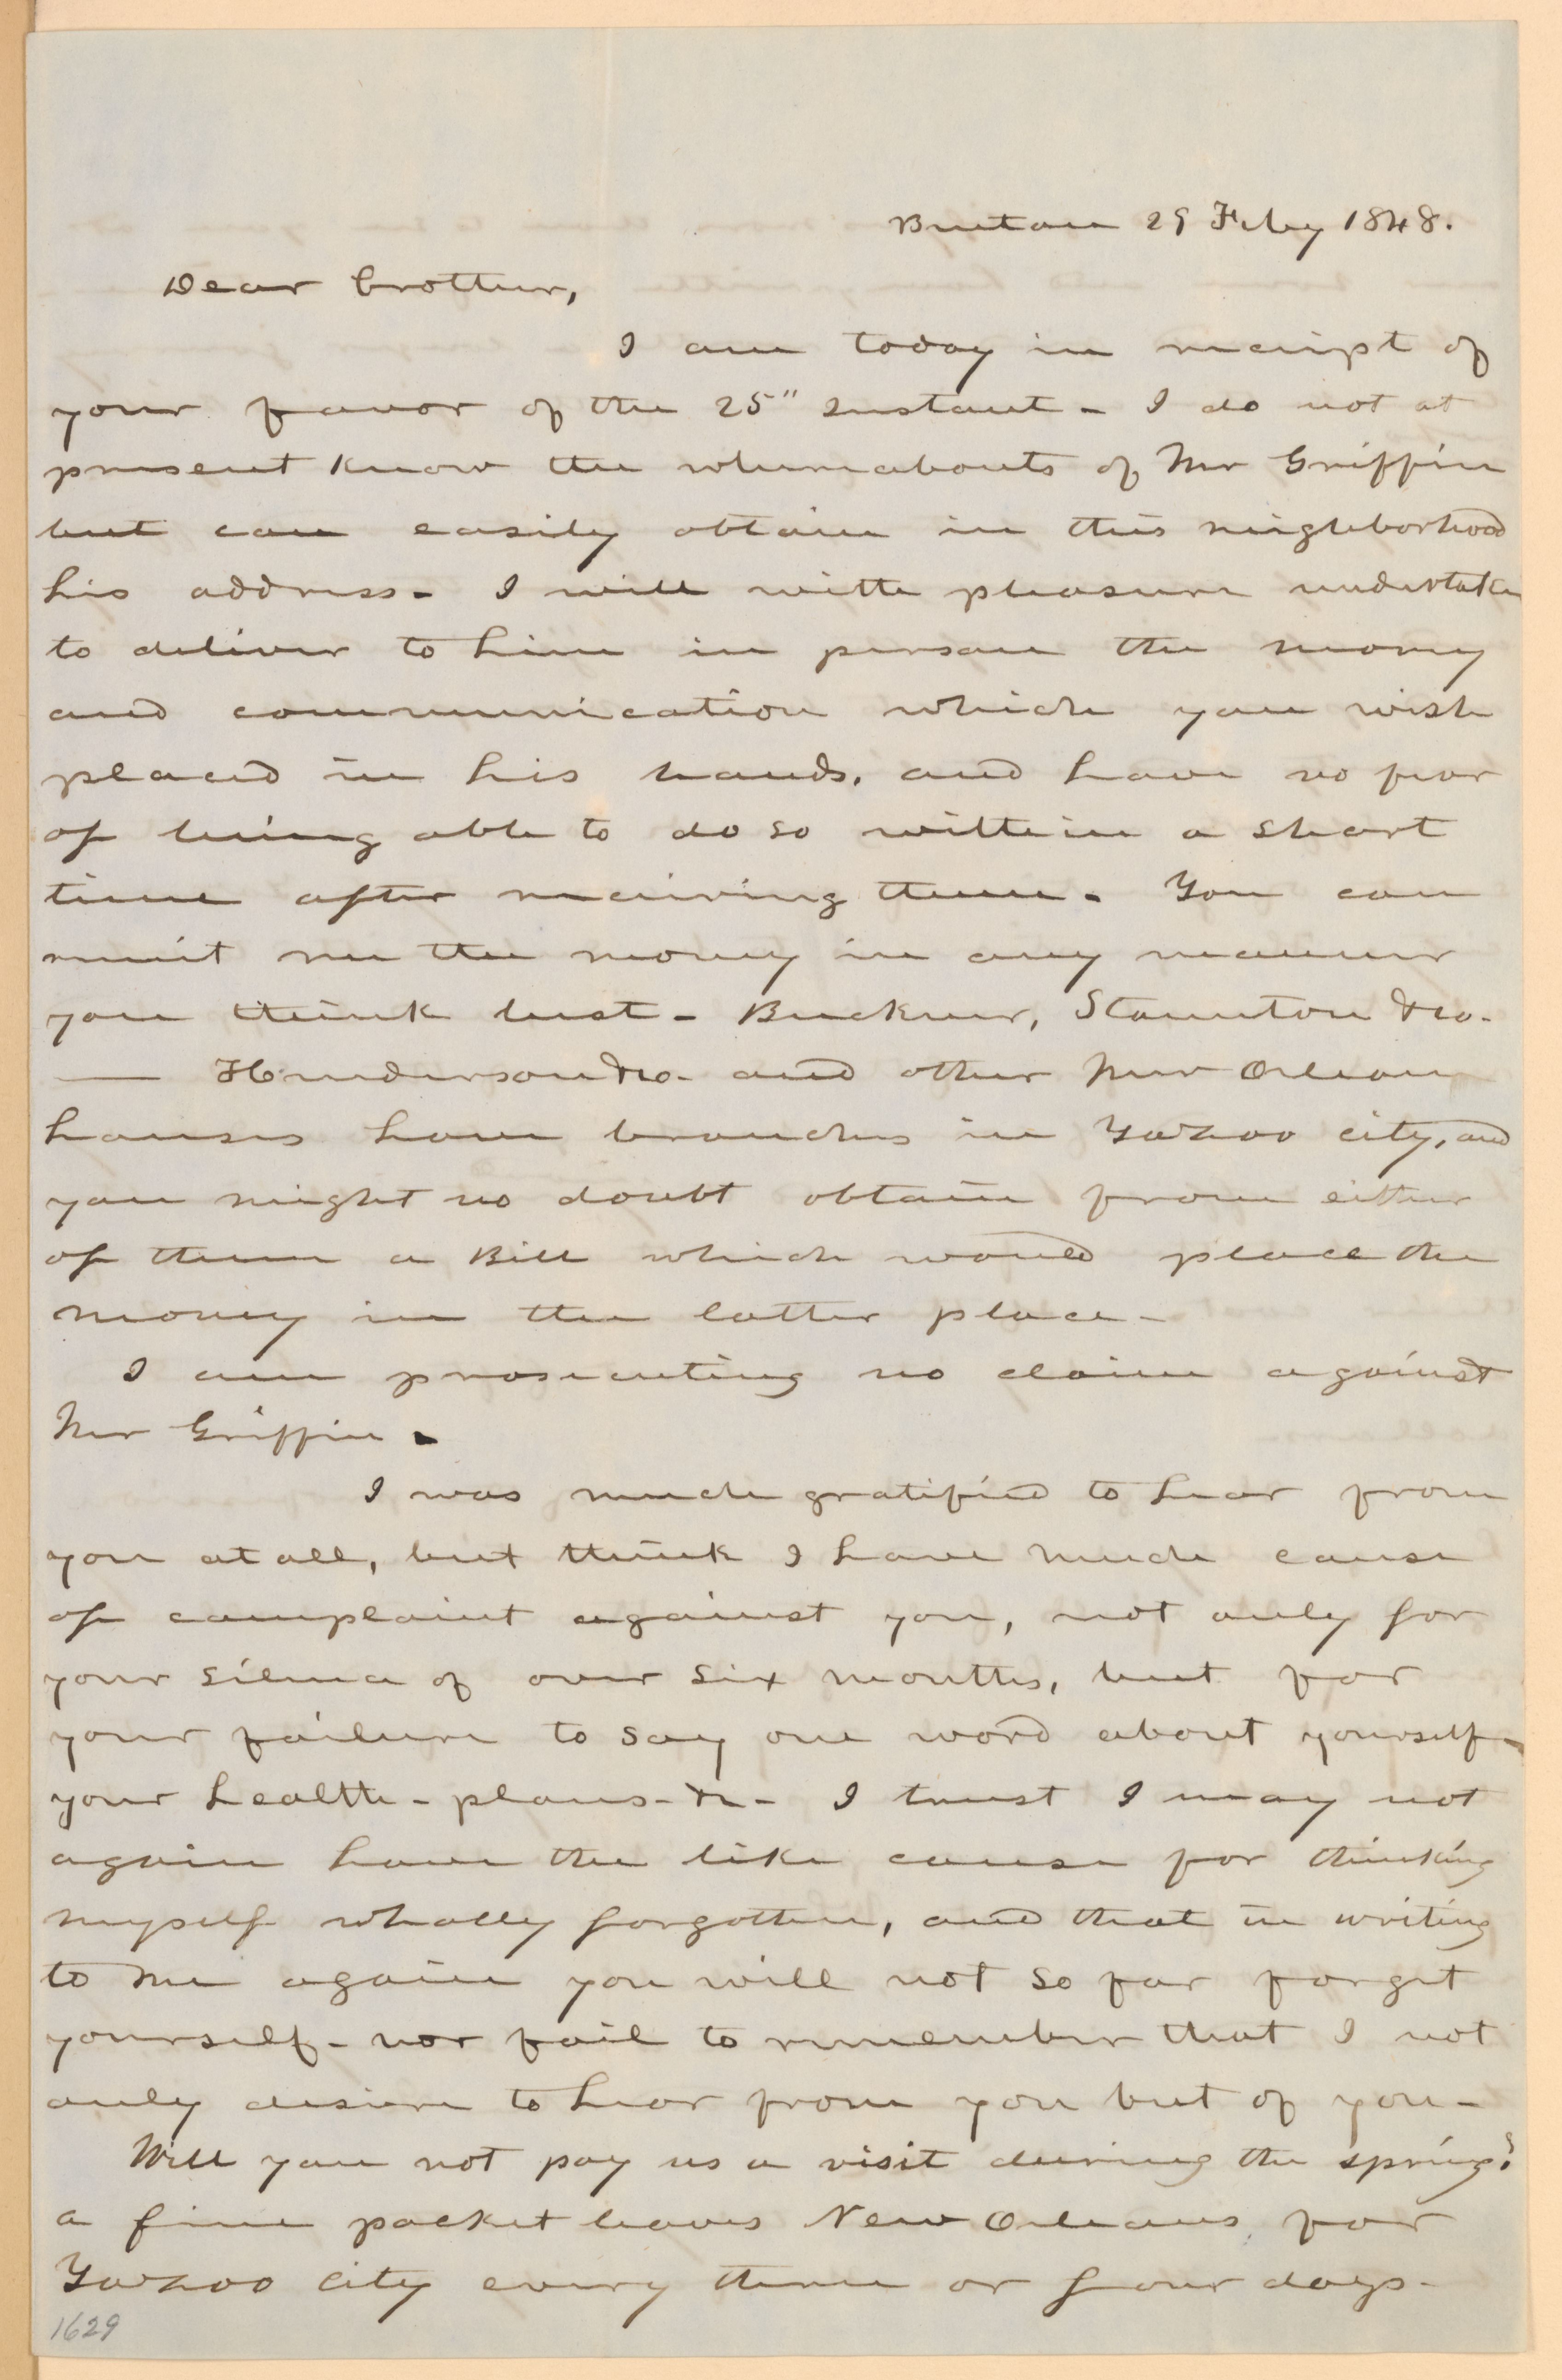 Bentonn 29 Feby 1848.
Dear brother,
I am today in receipt of
your favor of the 25" Instant - I do not at
present know the whereabouts of Mr Griffin
but can easily obtain in this neighborhood
his address - I will with pleasure undertake
to deliver to him in person the money
and communication which you wish
placed in his hands, and have no fear
of being able to do so within a short
time after receiving them. You can
remit me the money in any manner
you think best - Buckner, Staunton & Co.
— Henderson & Co. and other New Orleans
houses have branches in Yazoo city, and
you might no doubt obtain from either
of them a Bill which would place the
money in the latter place -
I am prosecuting no claim against
Mr Griffin -
I was much gratified to hear from
you at all, but think I have much cause
of complaint against you, not only for
your silence of over six months, but for
your failure to say one word about yourself -
your health - plans - &c - I trust I may not
again have the like cause for thinking
myself wholly forgotten, and that in writing
to me again you will not so far forget
yourself - nor fail to remember that I not
only desire to hear from you but of you -
Will you not pay us a visit during the spring?
a fine packet leaves New Orleans for
Yazoo city every three or four days -
1629